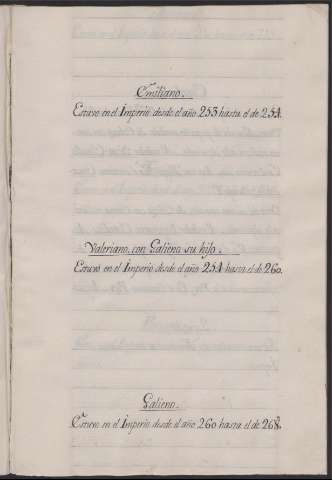 Emiliano.
Estuvo en el Imperio desde el año 253 hasta el de 254.
Valeriano, con Galieno su hijo.
Estuvo en el Imperio desde el año 254 hasta el de 260.
Galieno.
Estuvo en el Imperio desde el año 260 hasta el de 268.